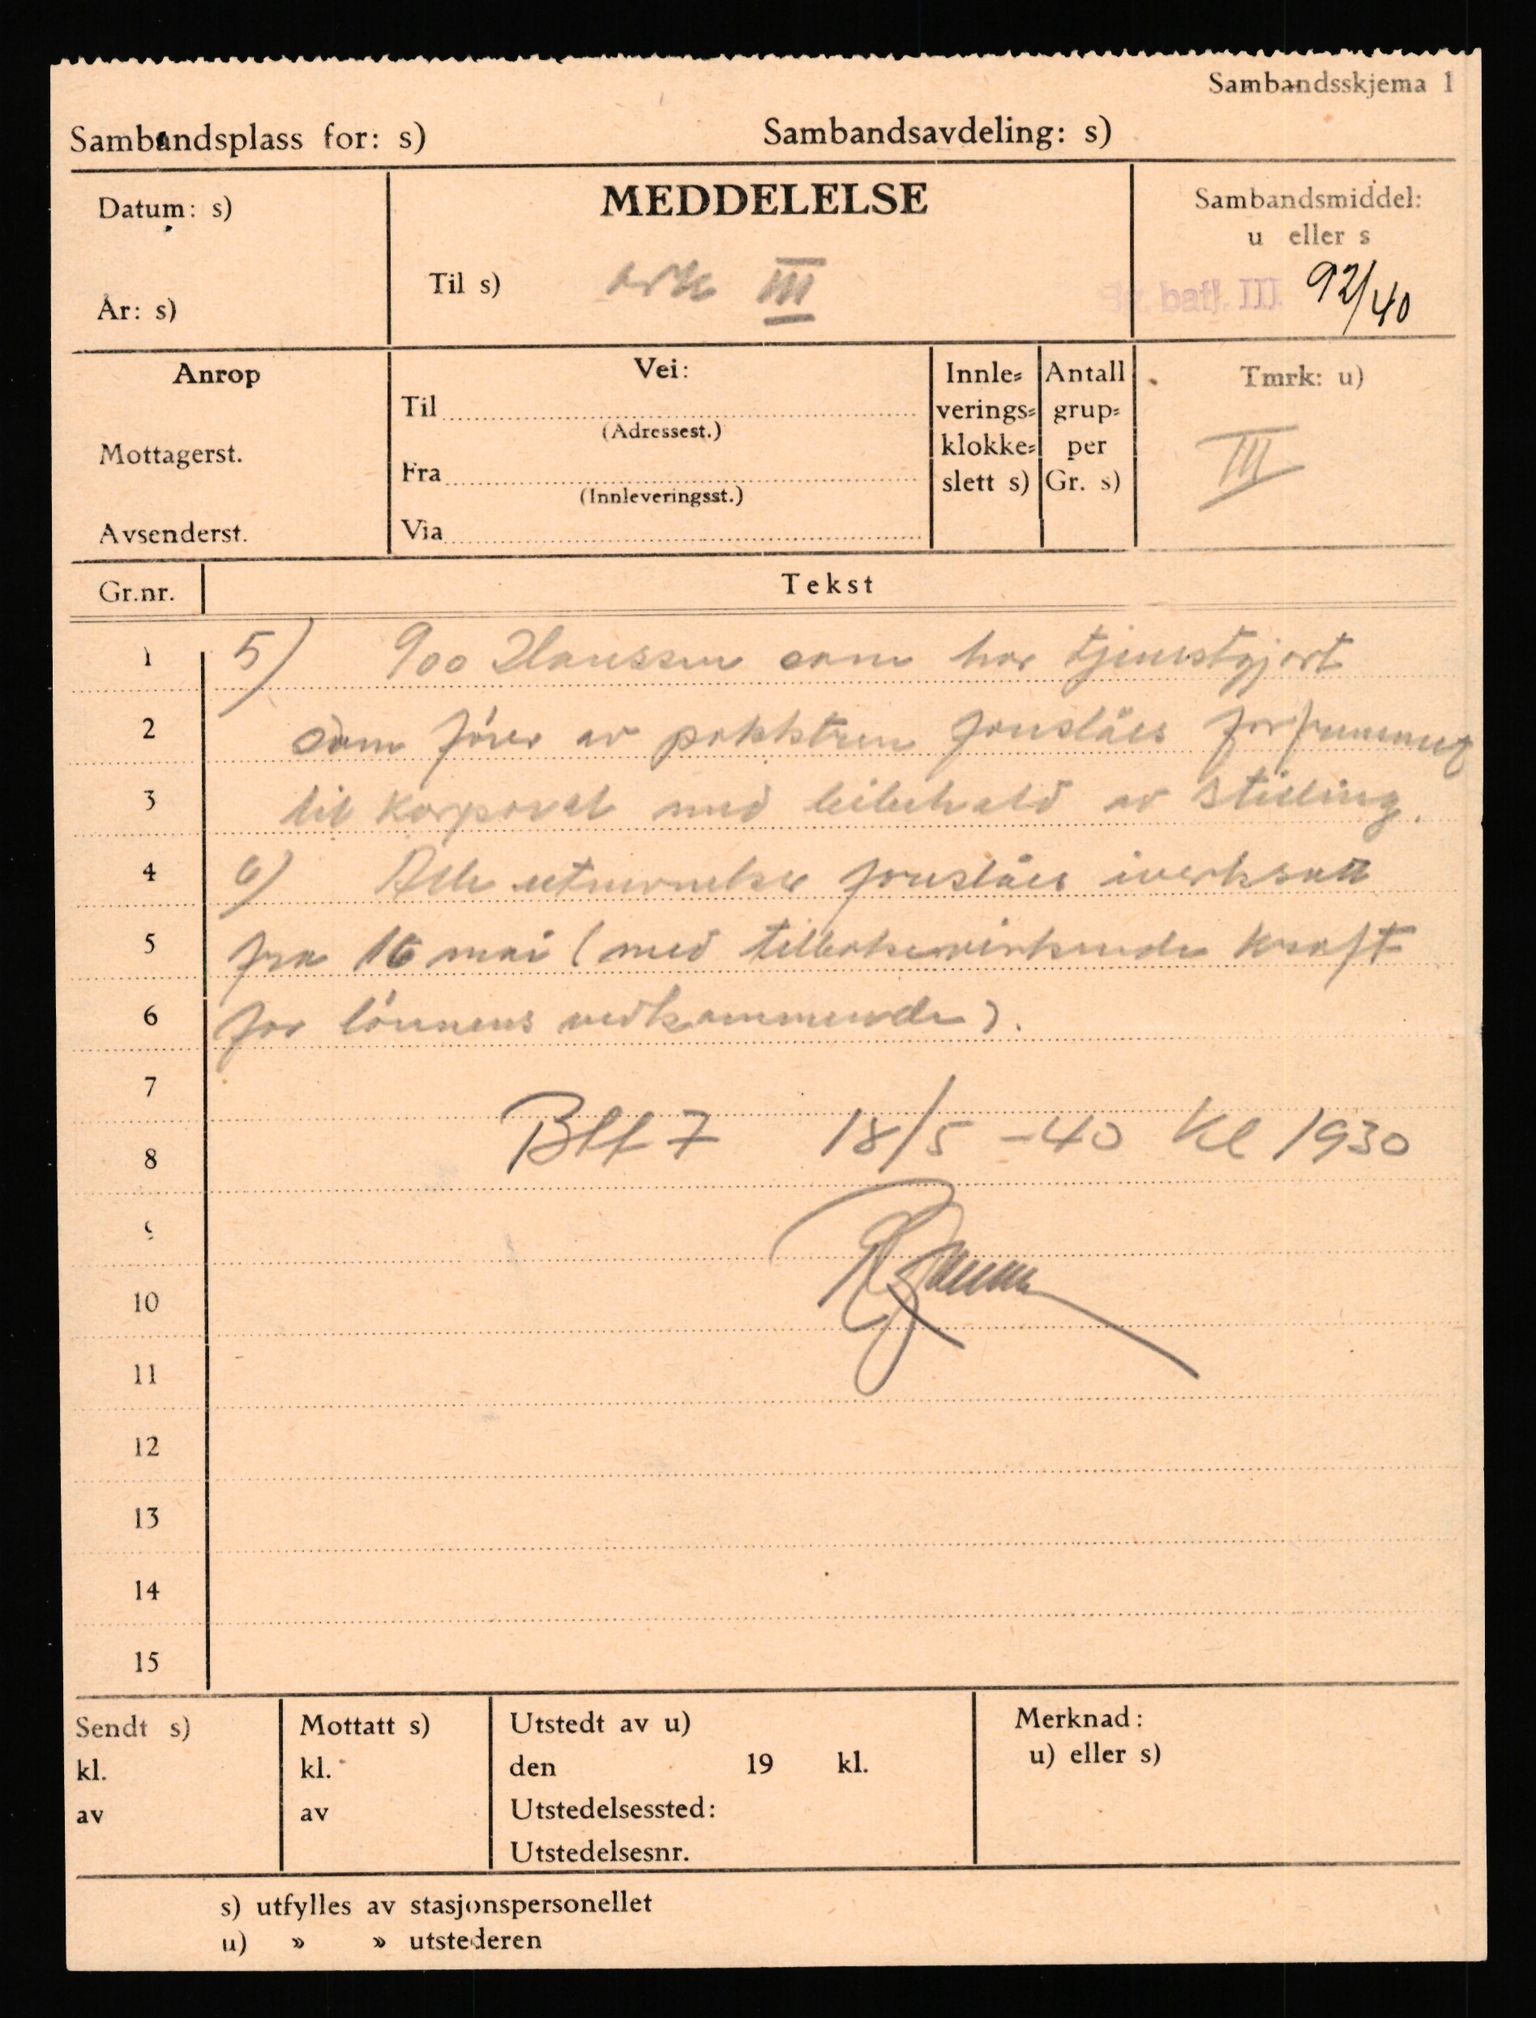 Sambandsskjema 1
Sambandsplass for: s) Sambandsavdeling: s)
Datum: s) MEDDELELSE Sambandsmiddel:
u eller s
Til s) III
batl. III 92/40
År: s)
Anrop Vei: Innle= Antall Tmrk: u)
Til (Adressest.) verings= grup=
Mottagerst. klokke= per III
Fra (Innleveringsst.) slett s) Gr. s)
Avsenderst. Via
Gr.nr. Tekst
1 5) 900 Hanssen som har tjenestgjort
2 som fører av foreslåes forfremmet
3 til korporal med bibehold av stilling.
4 6) Alle utnevnelser foreslåes iverksatt
5 fra 16 mai (med tilbakevirkende kraft
6 for lønnens vedkommende).
7
8 Btt 7 18/5 -40 Kl 1930
9
10
11
12
13
14
15
Sendt s) Mottatt s) Utstedt av u) Merknad:
u) eller s)
kl. kl. den 19 kl.
av av Utstedelsessted:
Utstedelsesnr.
s) utfylles av stasjonspersonellet
u) » » utstederen